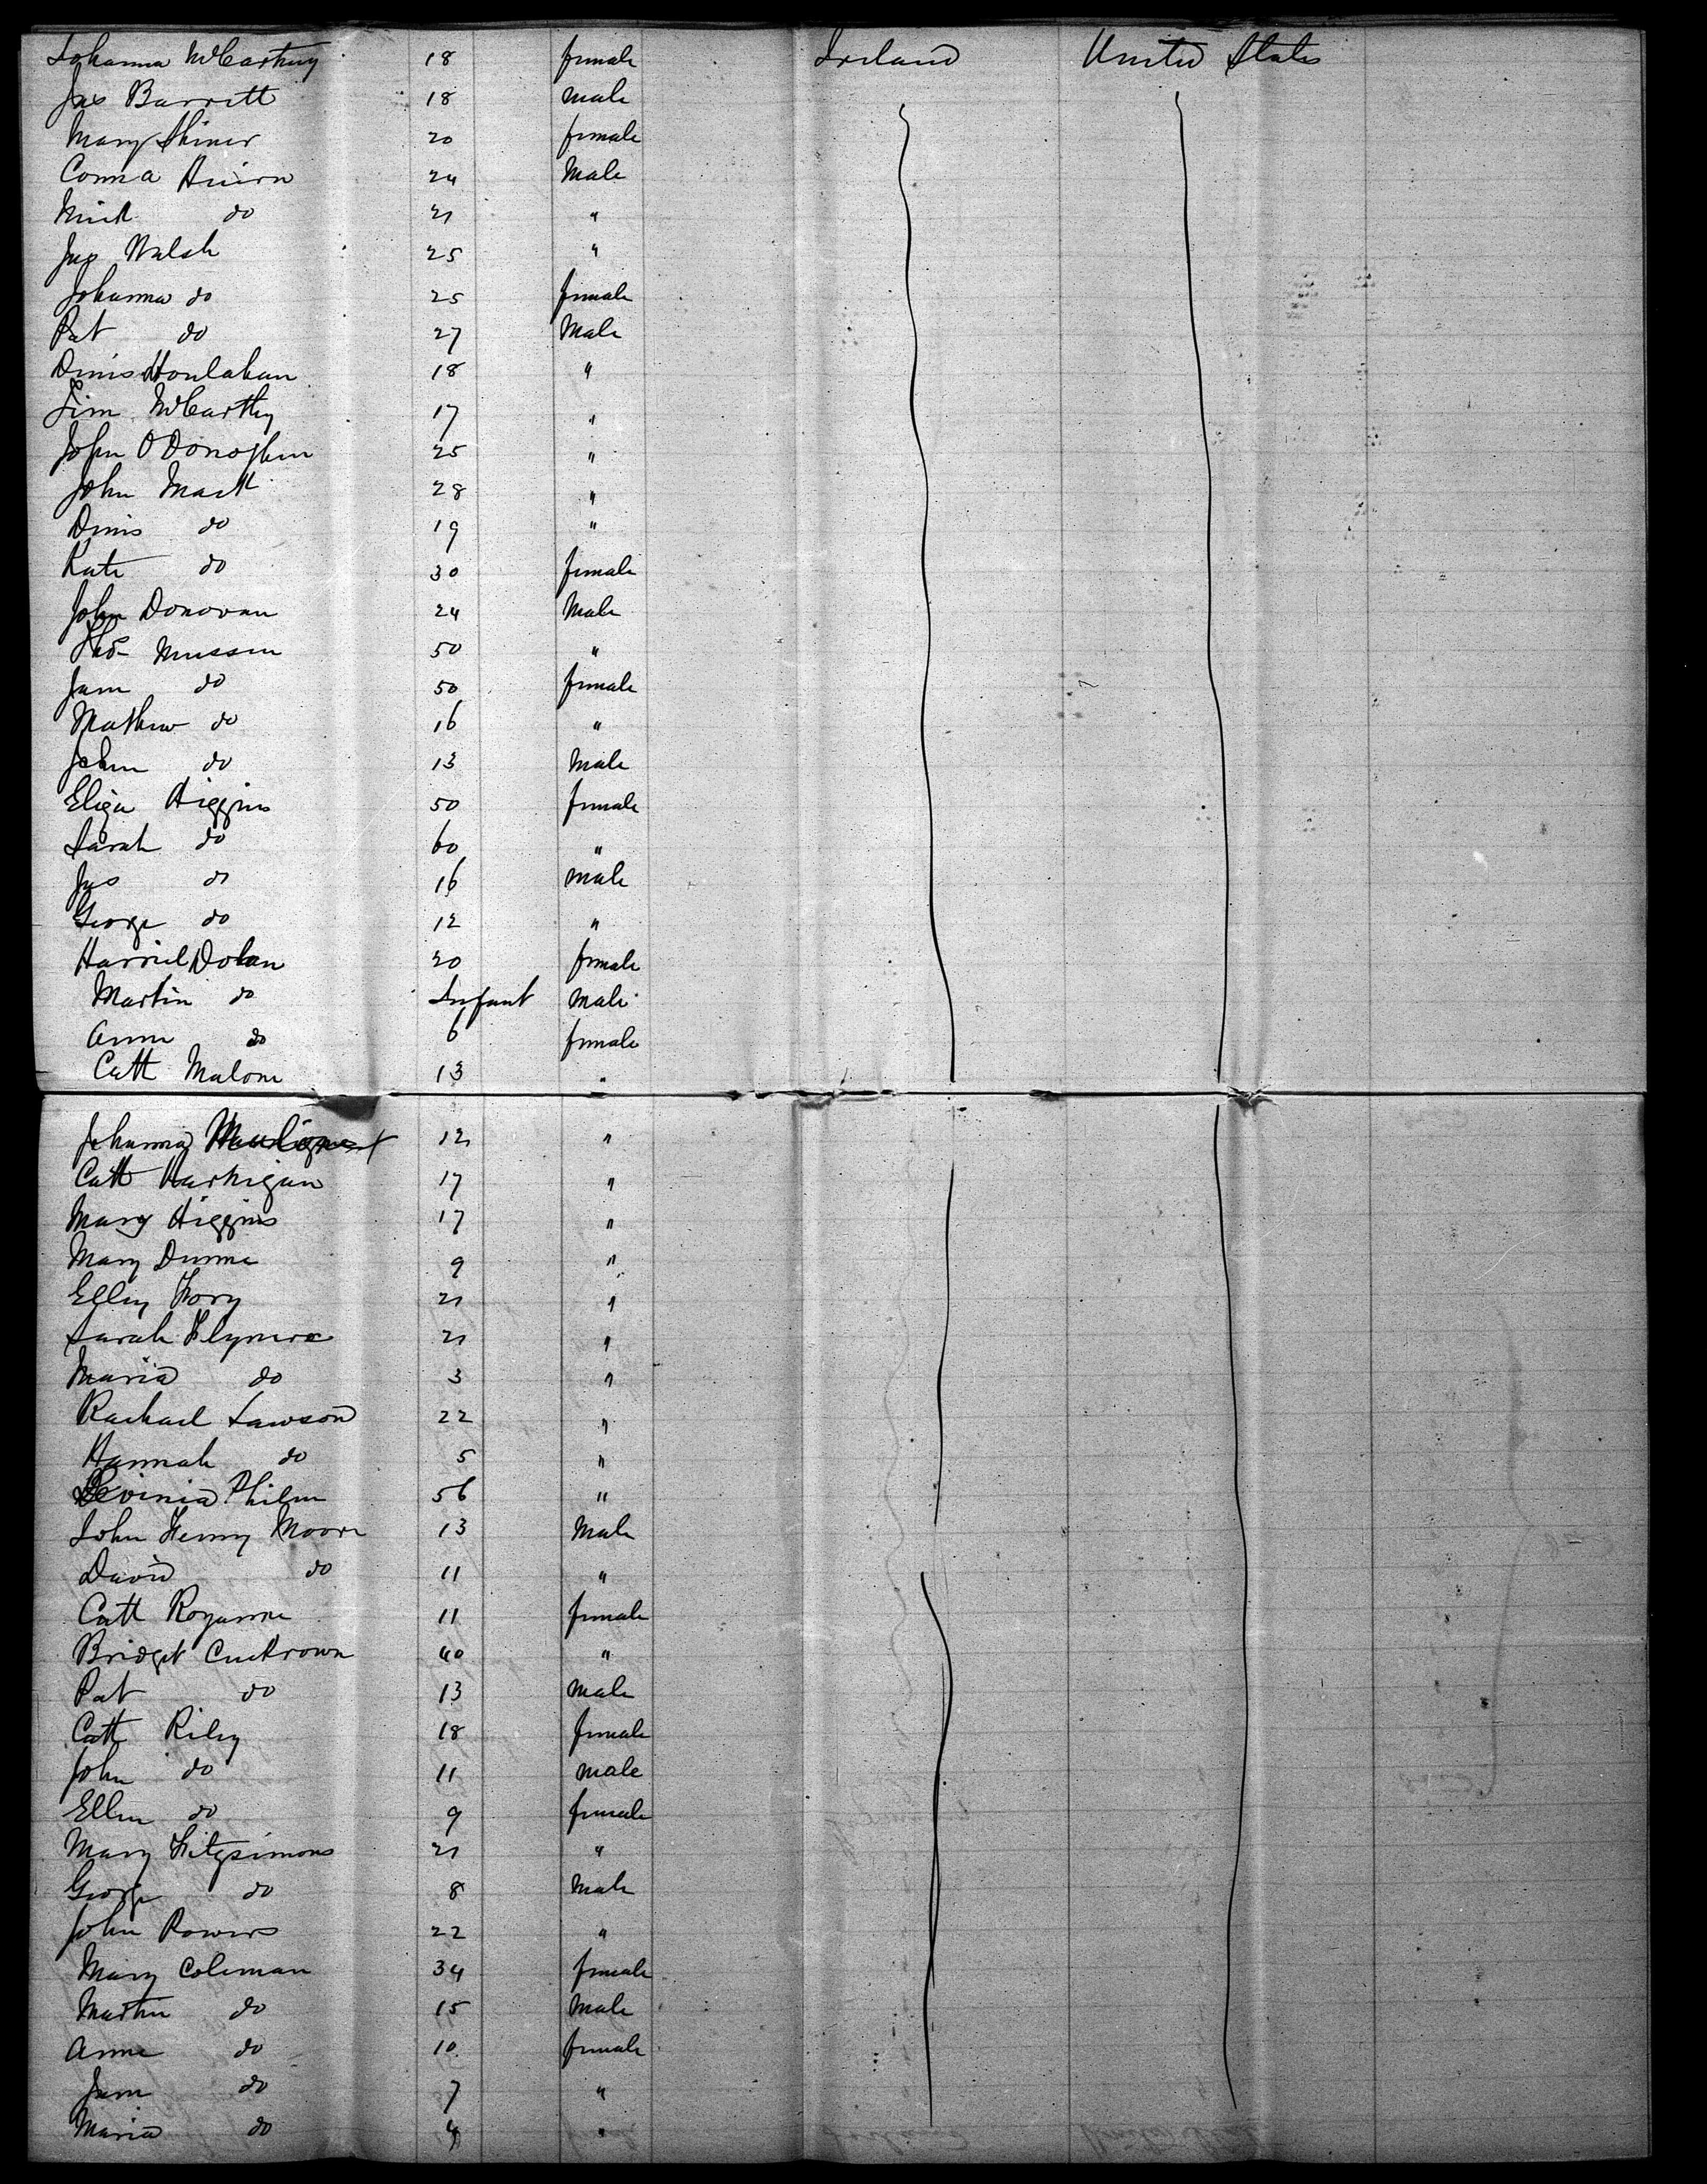 Johanna McCarthy 18 female Ireland United States
Jas Barrett 18 male
Mary Shiner 20 female
Conna 24 Male
Mick do 21 "
Jas Walsh 25 "
Johanna do 25 female
Pat do 27 Male
Dinis Houlahan 18 "
Tim McCarthy 17 "
John O Donoghue 25 "
John Mack 28 "
Dinis do 19 "
Kate do 30 female
John Donovan 24 Male
Thos 50 "
Jane do 50 female
Mathew do 16 "
John do 13 Male
Eliza Higgins 50 female
Sarah do 60 "
Jas do 16 male
George do 12 "
Harriet Dolan 20 female
Martin do Infant male
Anne do 6 female
Cath Malone 13 "
Johanna 12 "
Cath Harhigan 17 "
Mary Higgins 17 "
Mary Dunne 9 "
Ellen 21 "
Sarah 21 "
Maria do 3 "
Rachael Lawson 22 "
Hannah do 5 "
Levinia 56 "
John Henry Moore 13 Male
David do 11 "
Cath 11 female
Bridget 40 "
Pat do 13 male
Cath Riley 18 female
John do 11 male
Ellen do 9 female
Mary Fitzsimons 21 "
George do 8 Male
John Powers 22 "
Mary Coleman 34 female
Martin do 15 Male
Anne do 10 female
Jane do 7 "
Maria do 4 "